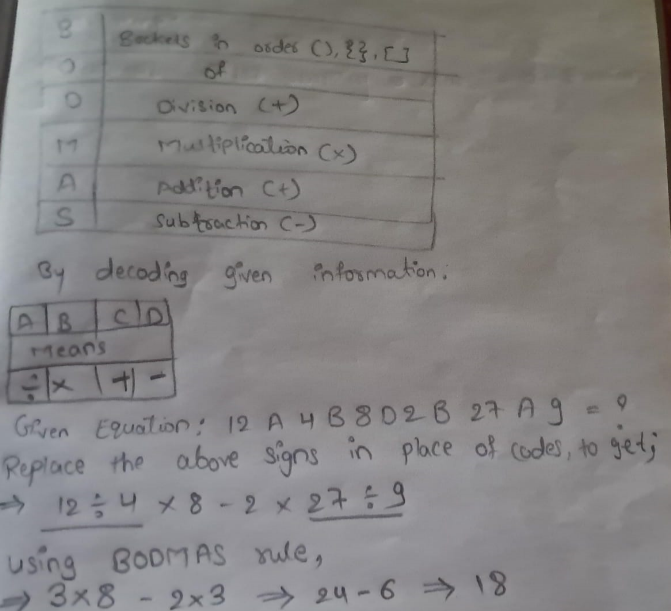 B Backets in order (), {}, []
O of
D Division (+)
M Multiplication (x)
A Addition (+)
S Subtraction (-)
By decoding given information:
A B C D
Means
÷ × + -
Given Equation: 12 A 4 B 8 D 2 B 27 A 9 = ?
Replace the above signs in place of codes, to get;
⇒ 12 ÷ 4 × 8 - 2 × 27 ÷ 9
using BODMAS rule,
⇒ 3×8 - 2×3 ⇒ 24-6 ⇒ 18